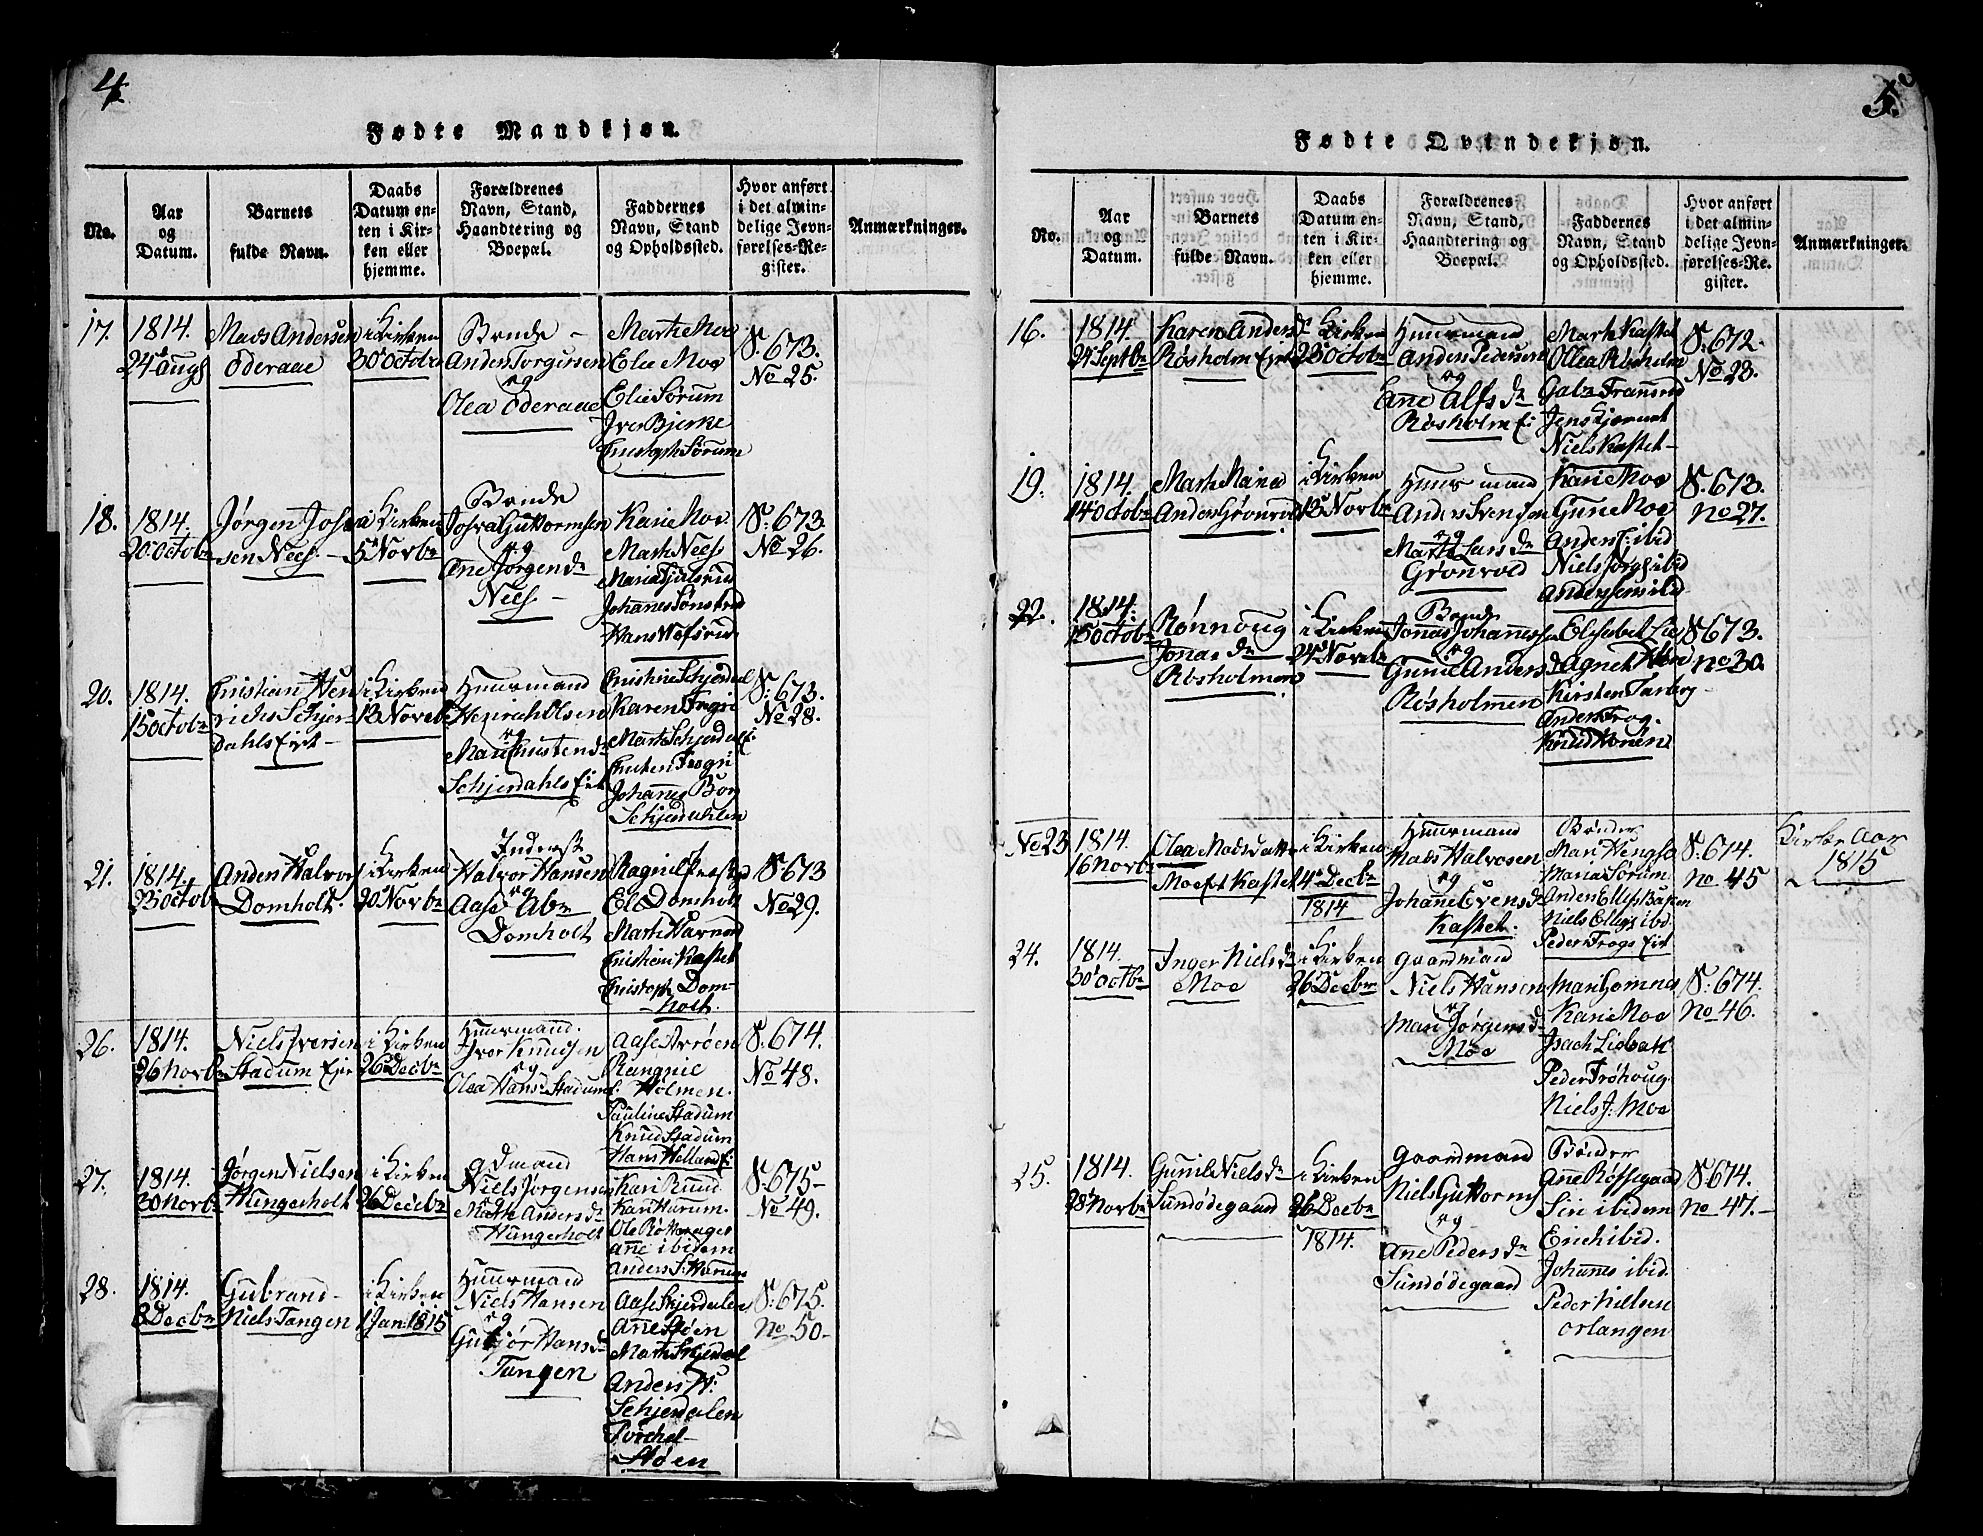 4.
Fødte Mandkjøn.
No.
Aar
og
Datum.
Barnets
fulde Navn.
Daabs
Datum en-
ten i Kir-
ken eller
hjemme.
Forældrenes
Navn, Stand,
Haandtering og
Boepæl.
Faddernes
Navn, Stand
og Opholdssted.
Hvor anført
i det almin-
delige Jevn-
førelses-Re-
gister.
Anmærkninger.
17.
1814.
24 Augs
Mads Andersen
Oderaae
i Kirken
30 Octobr
Bonde
Anders Torgirsen
og
Olea Oderaae
Marthe Moe
Elie Moe
Elie Sørum
Iver Bjerke
Christoph Sørum
S. 673.
No 25.
18.
1814.
20 Octobr
Jørgen Josva
sen Nees
i Kirken
5 Novbr
Bonde
Josva Guttormsen
og
Ane Jørgensdr
Nees
Karie Moe
Marth Nees
Maria
Johannes Sønsterud
Hans Hofsrud
S. 673
No 26.
20.
1814.
15 Octobr
Christian Hen
richs Schjer
Dahls Eyet
i Kirken
13 Novebr
Huusmand
Henrich Olsen
og
Mari Christensdr
Schjerdahls Eiet
Christine Schjerdal
Karen Frogri
Marth Schjerdal Ei
Christen Frogri
Johannes Borg
Schjerdahlen
S. 673.
No 28.
21.
1814.
23 Octob
Anders Halvors
Domholt.
i Kirken
20 Novbr
Inderst
Halvor Hansen
og
Aase Abr
Domholt
Ragnil
El Domholt
Marth
Christian Kastet
Christoph Dom-
holt.
S. 673
No 29.
26.
1814.
26 Novbr
Niels Iversen
Stadum Eje
i Kirken
26 Decbr
Huusmand.
Iver Knudsen
og
Olea Hans Stadum E.
Aase Avrøen
Rangnie
Holmen.
Pauline Stadum
Knud Stadum
Hans Helland Ei
S. 674.
No 48.
27.
1814.
30 Novbr
Jørgen Nielsen
Hungerholt
i Kirken
26 Decebr
Gdmand
Niels Jørgensen
Marthe Andersdr
Hungerholt
Kari Ruud.
Kari Harum.
Ole
Ane ibidem
Anders S. Harum
S. 675
No 49.
28.
1814.
3 Decbr
Gubrand
Niels Tangen
i Kirken
1 Jan: 1815
Huusmand
Niels Hansen
og
Gubjør Hansdr
Tangen
Aase Skjerdalen
Ane Støen
Marth Skjerdal
Anders H:
Schjerdalen
Torchel
Støen
S. 675.
No 50
5.
Fødte Qvindekjøn.
No.
Aar
og
Datum.
Barnets
fulde Navn.
Daabs
Datum en-
ten i Kir-
ken eller
hjemme.
Forældrenes
Navn, Stand,
Haandtering og
Boepæl.
Faddernes
Navn, Stand
og Opholdssted.
Hvor anført
i det almin-
delige Jevn-
førelses-Re-
gister.
Anmærkninger.
16.
1814.
24 Septbr
Karen Andersdr
Røsholm Eyet
i Kirken
23 Octobr
Huusmand
Anders Pedersen
og
Ane Alfsdr
Røsholm Ei
Marth Kastet
Olea Røsholm
Jens
Niels Kastet
S. 672.
No 23.
19.
1814.
14 Octobr
Marth Maria
Anders Grønvold
i Kirken
13 Novbr
Huusmand
Anders Svensen
og
Marth Larsdr
Grønvold
Karie Moe
Gune Moe
Anders E: ibid
Niels Jørgs ibid
Anders Jens ibid
S. 673.
no 27.
22.
1814.
15 octobr
Rønnoug
Jonasdr
Røsholmen
i Kirken
24 Novebr
Bonde
Jonas Johannessen
og
Gune Andersdr
Røsholmen
Elisabet Lie
Agnet
Kirsten Tanberg
Anders Frog.
Knud Honen
S 673.
no 30.
No 23
1814.
16 Novbr
Olea Madsdatter
Moe Kastet
i Kirken
4 Decbr
1814
Huusmand
Mads Halvorsen
og
Johane Evensdr
Kastet.
Bønder
Mari Hengsle
Maria Sørum.
Anders Ellefs Bakken
Niels Ellefs ibid.
Peder Frogs Eiet
S. 674.
no 45
Kirke Aar
1815
24.
1814.
30 octbr
Inger Nielsdr
Moe
i Kirken
26 Decbr
Gaardmand
Niels Hansen
og
Mari Jørgensdr
Moe
Mari Gomnes
Karie Moe
Isach Liebak
Peder Frøhoug
Niels J: Moe
S. 674.
no 46.
25.
1814.
28 Novbr
Gunil Nielsdr
Sundødegaard
i Kirken
26 Decbr
1814.
Gaardmand
Niels Guttorms
og
Ane Pedersdr
Sundødegaard
Bønder
Ane Røssegaard
Siri ibidem
Erich ibid.
Johannes ibid.
Peder Nielsen
Orlangen
S. 674.
no 47.